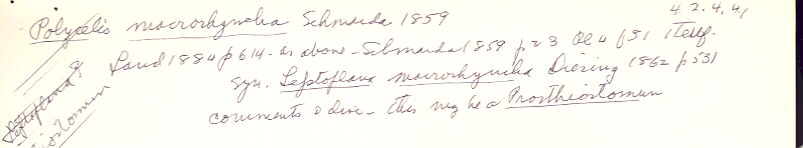 Polycelis macrorhyncha Schmarda 1859
42.4.41
Lang 1884 p 614 - as above - Schmarda 1859 p 23 Pl 4 f 51 1 text f.
syn. Leptoplana macrorhyncha Diesing 1862 p 531
comments & disc - this may be a Prosthiostomum
Leptoplana?
iostomum